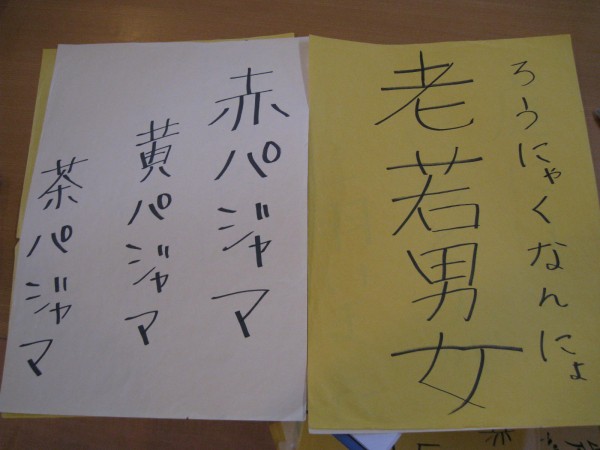 ろうにゃくなんにょ
老若男女
赤パジャマ
黄パジャマ
茶パジャマ